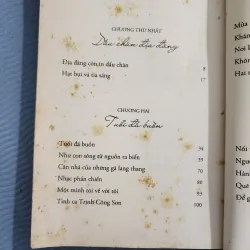 CHƯƠNG THỨ NHẤT
Dấu chân địa đàng
Địa đàng còn in dấu chân 8
Hạt bụi và tia sáng 17
CHƯƠNG HAI
Tuổi đá buồn
Tuổi đá buồn 54
Như con sông từ nguồn ra biển 59
Căn nhà của những gã lang thang 70
Nhạc phản chiến 85
Một mình tôi về với tôi 93
Tình ca Trịnh Công Sơn 100
Mùa
Khán
Nơi l
Khúc
Hai
Nỗi
Ngườ
Hành
Quê
Để g